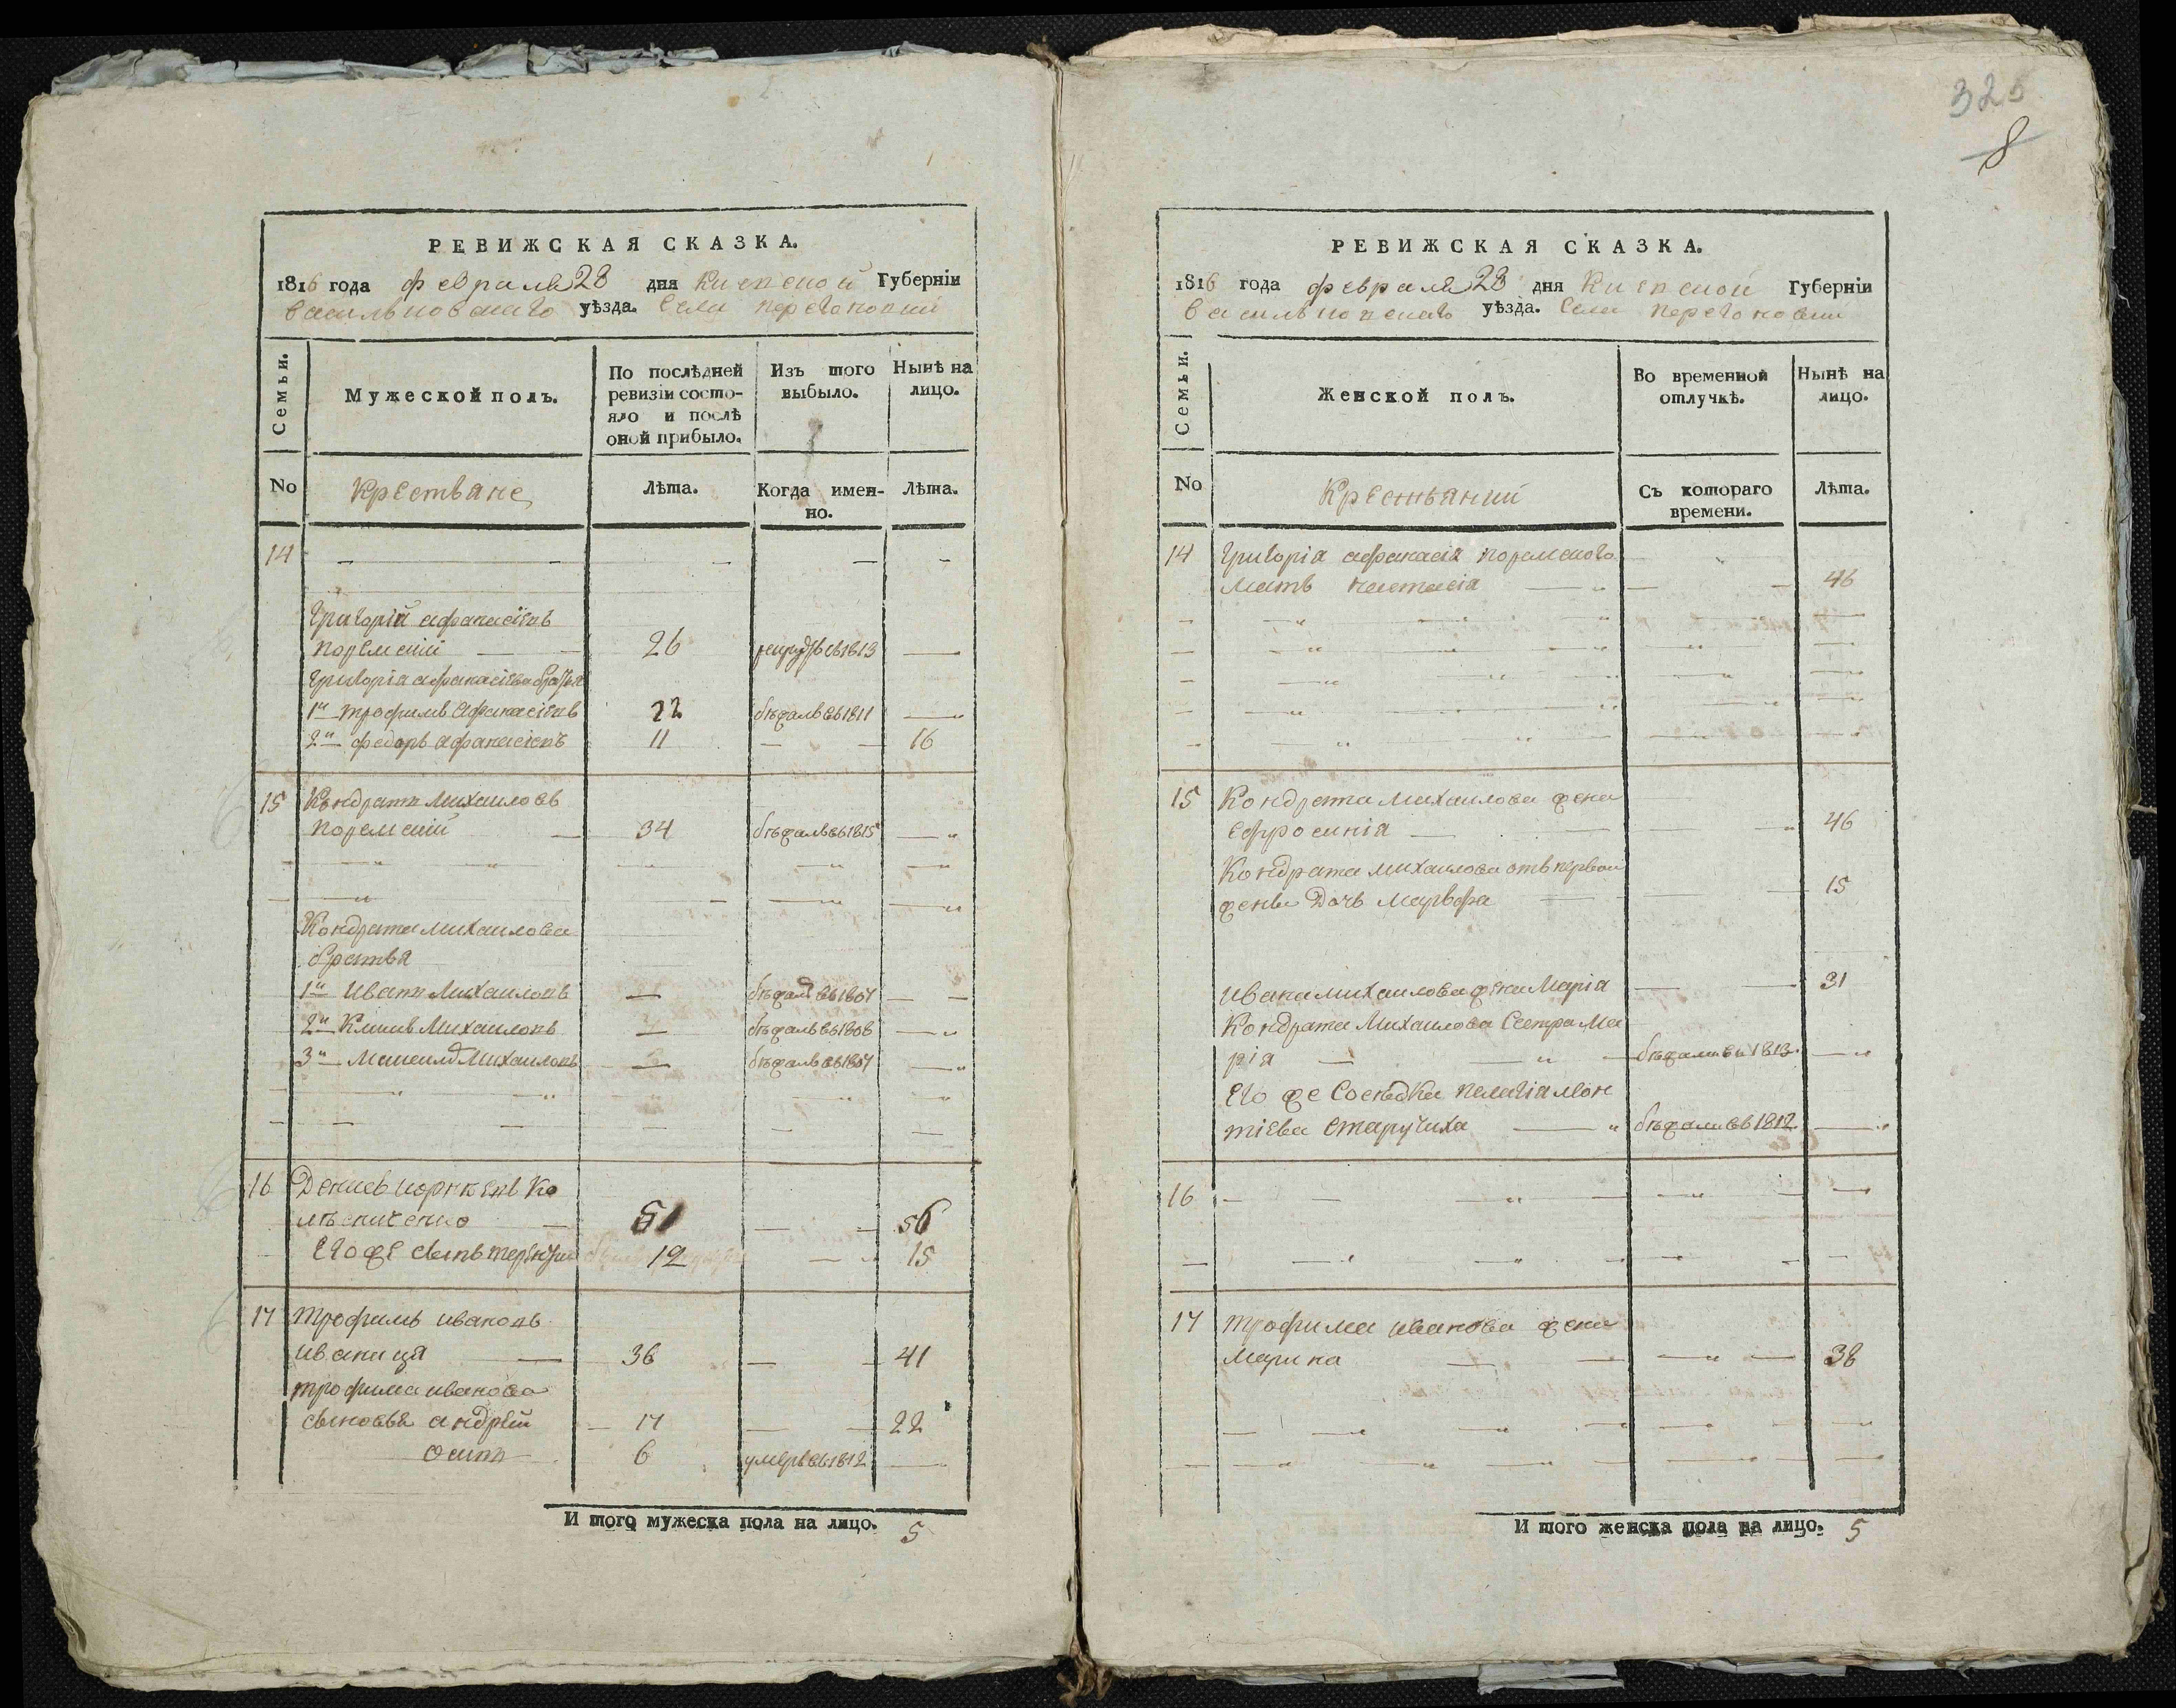 РЕВИЖСКАЯ СКАЗКА.
1816 года февраля 28 дня Киевской Губерніи
Васильковскаго уѣзда. Села
Семьи.
Мужеской полъ.
По послѣдней ревизіи состо-
яло и послѣ
оной прибыло.
Изъ того выбыло.
Нынѣ на лицо.
No
Крестьяне
Лѣта.
Когда имен-
но.
Лѣта.
14
Григорій Афанасіевъ
26 въ 1813
Григорія Афанасіева братья
1й Трофимъ Афанасіевъ 22 бѣжалъ въ 1811
2й Федоръ Афанасіевъ 11 16
15 Кондратъ Михаиловъ
34 бѣжалъ въ 1815
Кондрата Михаилова
братья
1й Иванъ Михаиловъ бѣжалъ въ 1807
2й Климъ Михаиловъ бѣжалъ въ 1808
3й Михаиловъ бѣжалъ въ 1807
16 Денисъ Ко
лѣсниченко 51 56
Его же сынъ Терентій 12 15
17 Трофимъ Ивановъ
Иваниця 36 41
Трофима Иванова
сыновья Андрей 17 22
Осипъ 6 умеръ въ 1812
И того мужеска пола на лицо. 5
320
8
РЕВИЖСКАЯ СКАЗКА.
1816 года февраля 28 дня Киевской Губерніи
Васильковскаго уѣзда. Села
Семьи.
Женской полъ.
Во временной отлучкѣ.
Нынѣ на лицо.
No
Крестьянки
Съ котораго времени.
Лѣта.
14 Григорія Афанасія
мать Настасія 46
15 Кондрата Михаилова жена
Ефросинія 46
Кондрата Михаилова отъ первой
жены дочь Марѳа 15
Ивана Михаилова жена Марія 31
Кондрата Михаилова сестра Ма
рія бѣжала въ 1813
Его же сосѣдка Пелагія Леон
тіева бѣжала въ 1812
16
17 Трофима Иванова жена
Марина 38
И того женска пола на лицо. 5